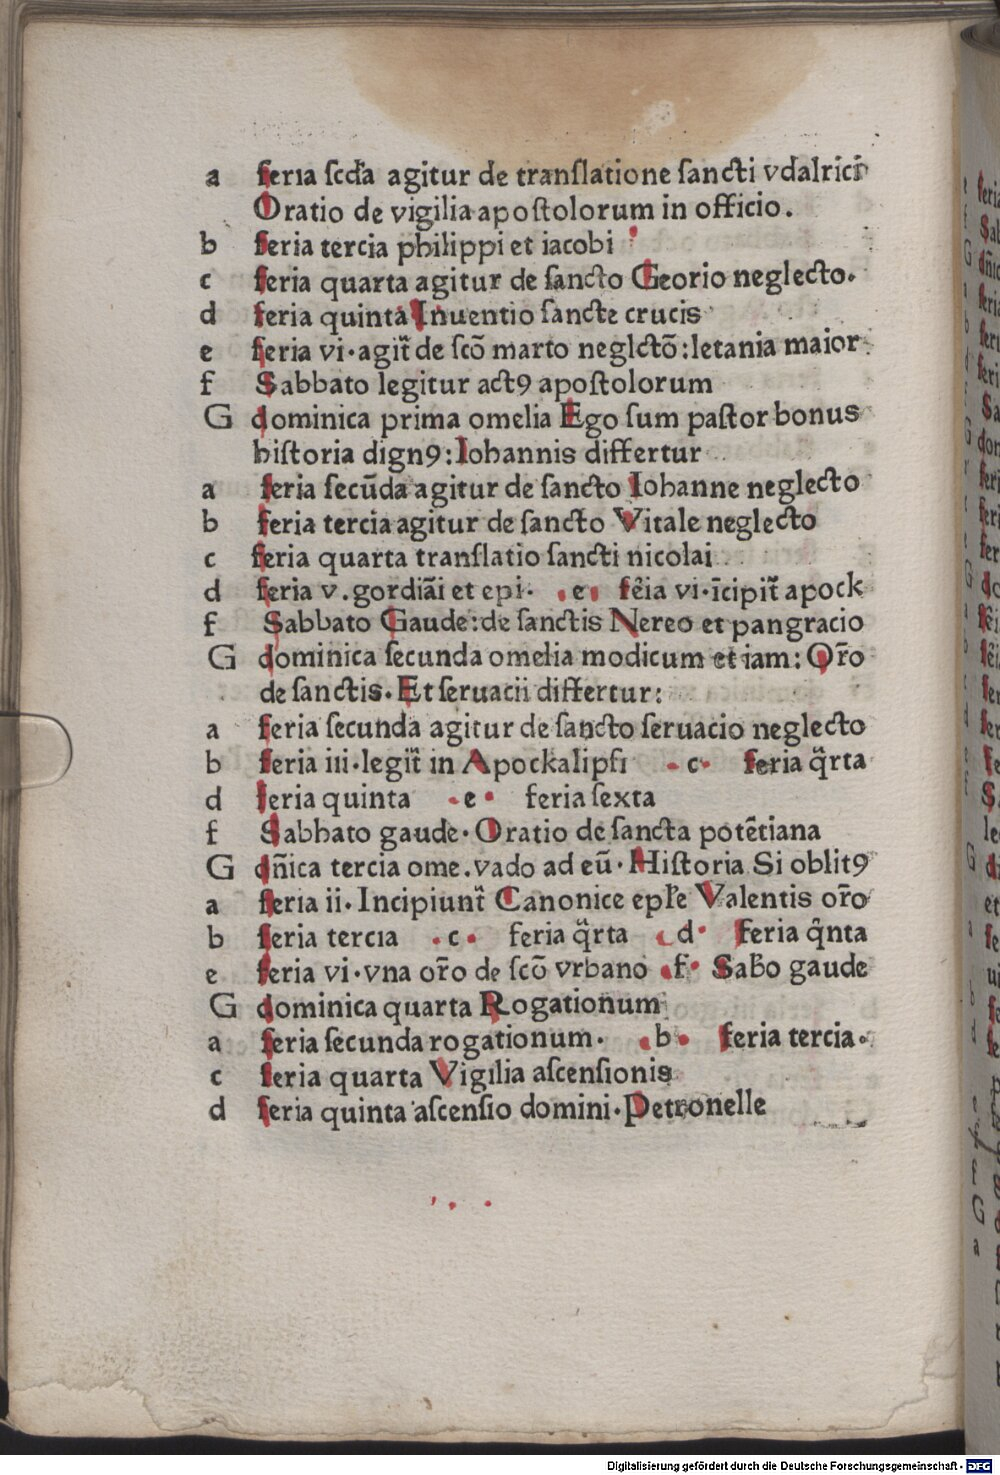 a feria scďa agitur de translatione sancti vdalrici
Oratio de vigilia apostolorum in officio.
b feria tercia philippi et iacobi
c feria quarta agitur de sancto Georio neglecto.
d feria quinta Inuentio sancte crucis
e feria vi·agit᷑ de scō marto neglctō:letania maior
f Sabbato legitur actꝰ apostolorum
G dominica prima omelia Ego sum pastor bonus
historia dignꝰ:Iohannis differtur
a feria secūda agitur de sancto Iohanne neglecto
b feria tercia agitur de sancto Vitale neglecto
c feria quarta translatio sancti nicolai
d feria v.gordiāi et epi· ·e· fēia vi·īcipit᷑ apock
f Sabbato Gaude:de sanctis Nereo et pangracio
G dominica secunda omelia modicum et iam:Or̄o
de sanctis.Et seruacii differtur:
a feria secunda agitur de sancto seruacio neglecto
b feria iii·legit᷑ in Apockalipsi ·c· feria q̄rta
d feria quinta ·e· feria sexta
f Sabbato gaude·Oratio de sancta potētiana
G dn̄ica tercia ome.vado ad eū·Historia Si oblitꝰ
a feria ii·Incipiunt᷑ Canonice epl̄e Valentis or̄o
b feria tercia ·c· feria q̄rta ·d· feria q̄nta
e feria vi·vna or̄o de scō vrbano ·f· Sab̄o gaude
G dominica quarta Rogationum
a feria secunda rogationum· ·b· feria tercia·
c feria quarta Vigilia ascensionis
d feria quinta ascensio domini·Petronelle
Digitalisierung gefördert durch die Deutsche Forschungsgemeinschaft - DFG